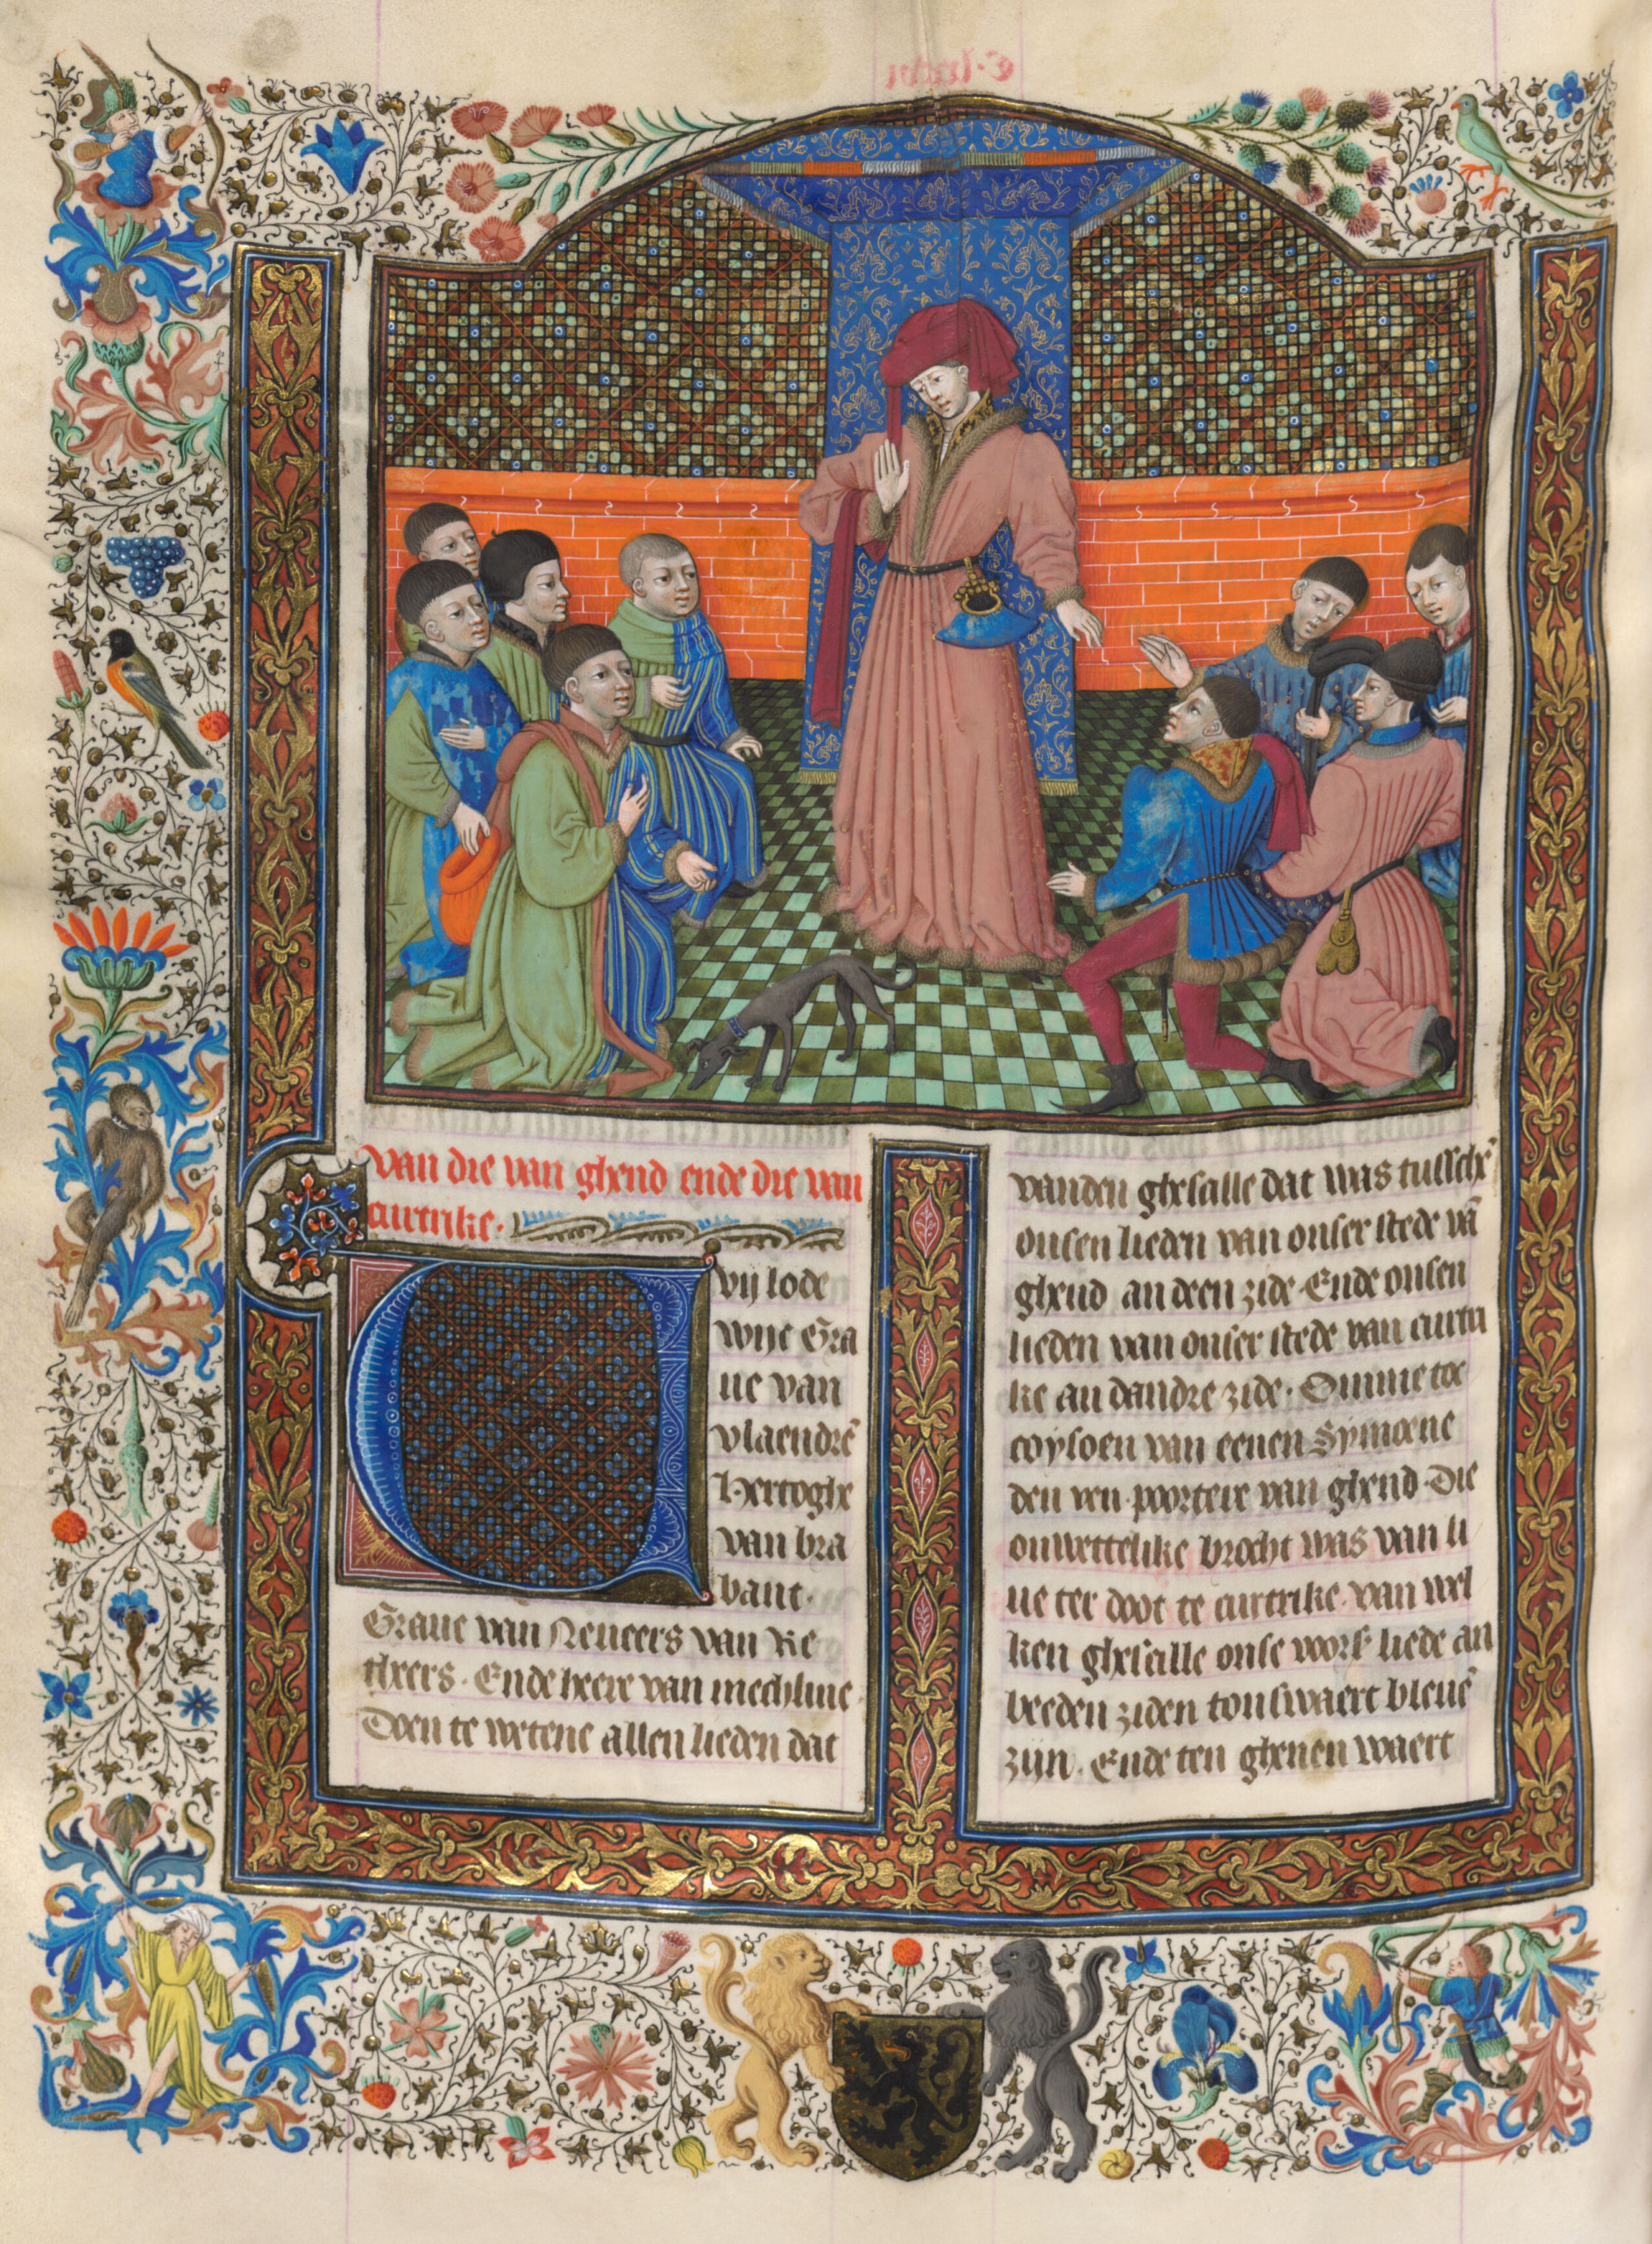 Van die van ghend ende die van
curtrike.
Wij lode
wijc Gra
ue van
vlaendrē
Hertoghe
van bra
bant.
Graue van Neueers van Re
theers. Ende heere van mechline
Doen te wetene allen lieden dat
vanden ghescille dat was tusschē
onsen lieden van onser stede vā
ghend an deen zide. Ende onsen
lieden van onser stede van curtri
ke an dandre zide. Omme toc
coysoen van eenen Symoene
den poortere van ghend. Die
onwettelike brocht was van li
ue ter doot te curtrike. van wel
ken ghescille onse voors liede an
beeden ziden tonswaert bleuē
zijn. Ende ten ghenen waert